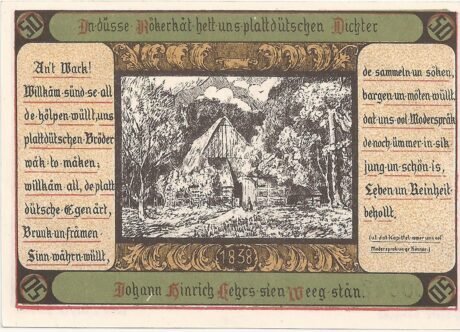 50
In düsse Rökerkåt hett uns plattdütschen Dichter
50
An't Wark!
Willkåm sünd se all
de hölpen wüllt, uns
plattdütschen Bröder
wåk to måken;
willkåm all, de platt
dütsche Egenårt,
Bruuk un fråmen
Sinn wåhrn wüllt,
de sammeln un söken,
bargen un möten wüllt,
dat uns ool Moderspråk
de noch ümmer in sik
jung un schön is,
Leben un Reinheit
behollt.
1838
50
Johann Hinrich Fehrs sien Weeg stån.
50